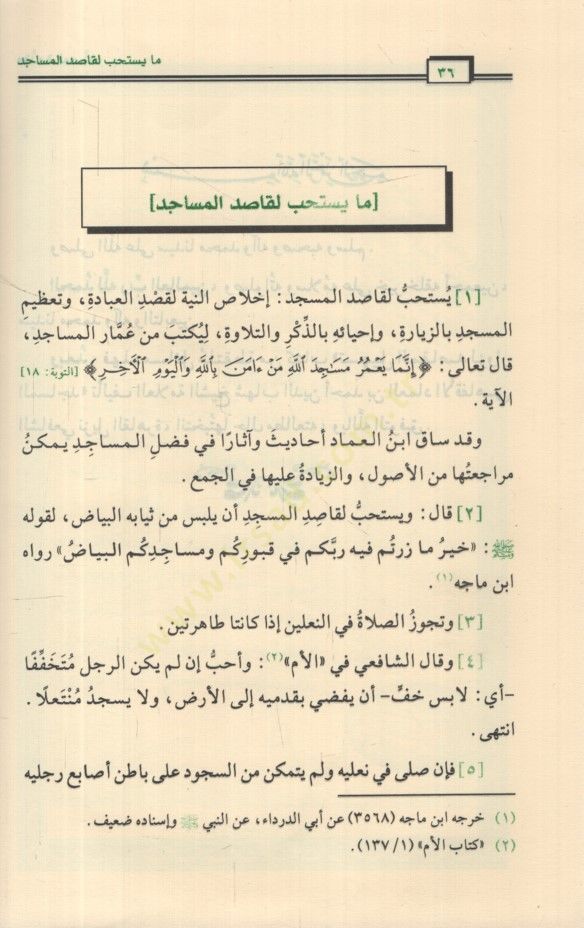 ما يستحب لقاصد المساجد
٣٦
[ما يستحب لقاصد المساجد]
[١] يُستحبُّ لقاصد المسجد: إخلاص النية لقصْدِ العبادةِ، وتعظيمِ
المسجدِ بالزيارةِ، وإحيائهِ بالذِّكْرِ والتلاوةِ، لِيُكتَبَ من عُمَّار المساجدِ،
قال تعالى: ﴿إِنَّمَا يَعْمُرُ مَسَٰجِدَ اللَّهِ مَنْ ءَامَنَ بِاللَّهِ وَالْيَوْمِ الْآخِرِ﴾ [التوبة: ١٨]
الآية.
وقد ساق ابنُ العماد أحاديثَ وآثارًا في فضلِ المساجِدِ يمكنُ
مراجعتُها من الأصول، والزيادةُ عليها في الجمع.
[٢] قال: ويستحبُّ لقاصِدِ المسجِدِ أن يلبس من ثيابه البياض، لقوله
ﷺ: «خيرُ ما زرتُم فيه ربَّكم في قبورِكُم ومساجِدِكُم البياضُ» رواه
ابن ماجه(١).
[٣] وتجوزُ الصلاةُ في النعلين إذا كانتا طاهرتين.
[٤] وقال الشافعي في «الأم»(٢): وأحبُّ إن لم يكن الرجل مُتَخَفِّفًا
-أي: لابس خفٍّ- أن يفضي بقدميه إلى الأرض، ولا يسجدُ مُنْتَعلًا.
انتهى.
[٥] فإن صلى في نعليه ولم يتمكن من السجود على باطن أصابع رجليه
(١) خرجه ابن ماجه (٣٥٦٨) عن أبي الدرداء، عن النبي ﷺ وإسناده ضعيف.
(٢) «كتاب الأم» (١/ ١٣٧).